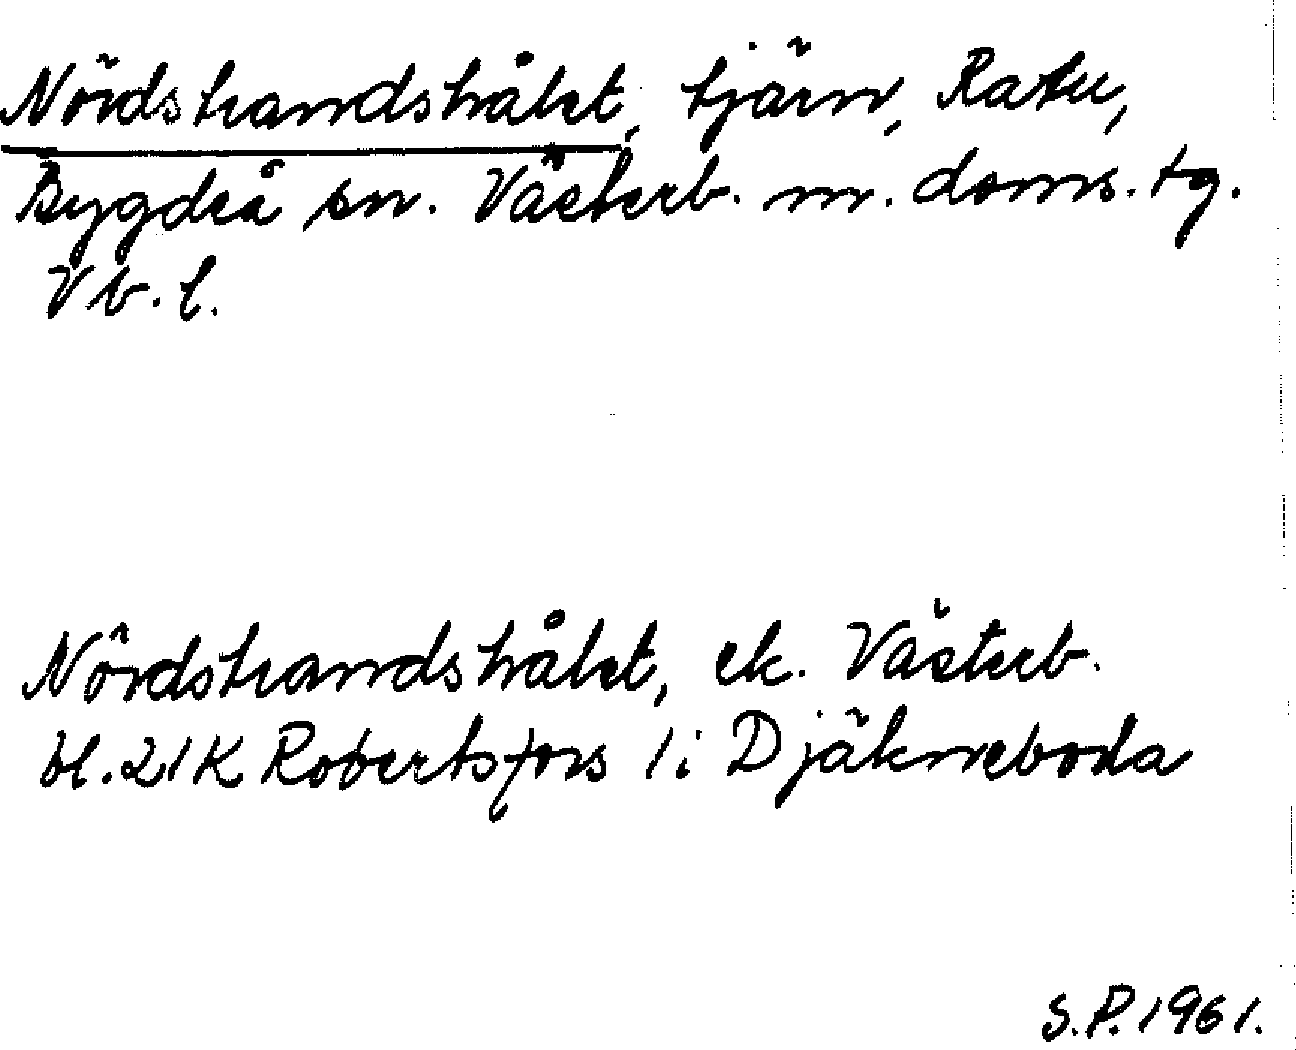 Nördstrandstråket, tjärn, Ratu,
Bygdeå sn. Västerb. m. doms. tg.
Vb. l.
Nördstrandstråket, ek. Västerb.
bl. 21K Robertsfors 1 i Djäkneboda
S.P. 1961.